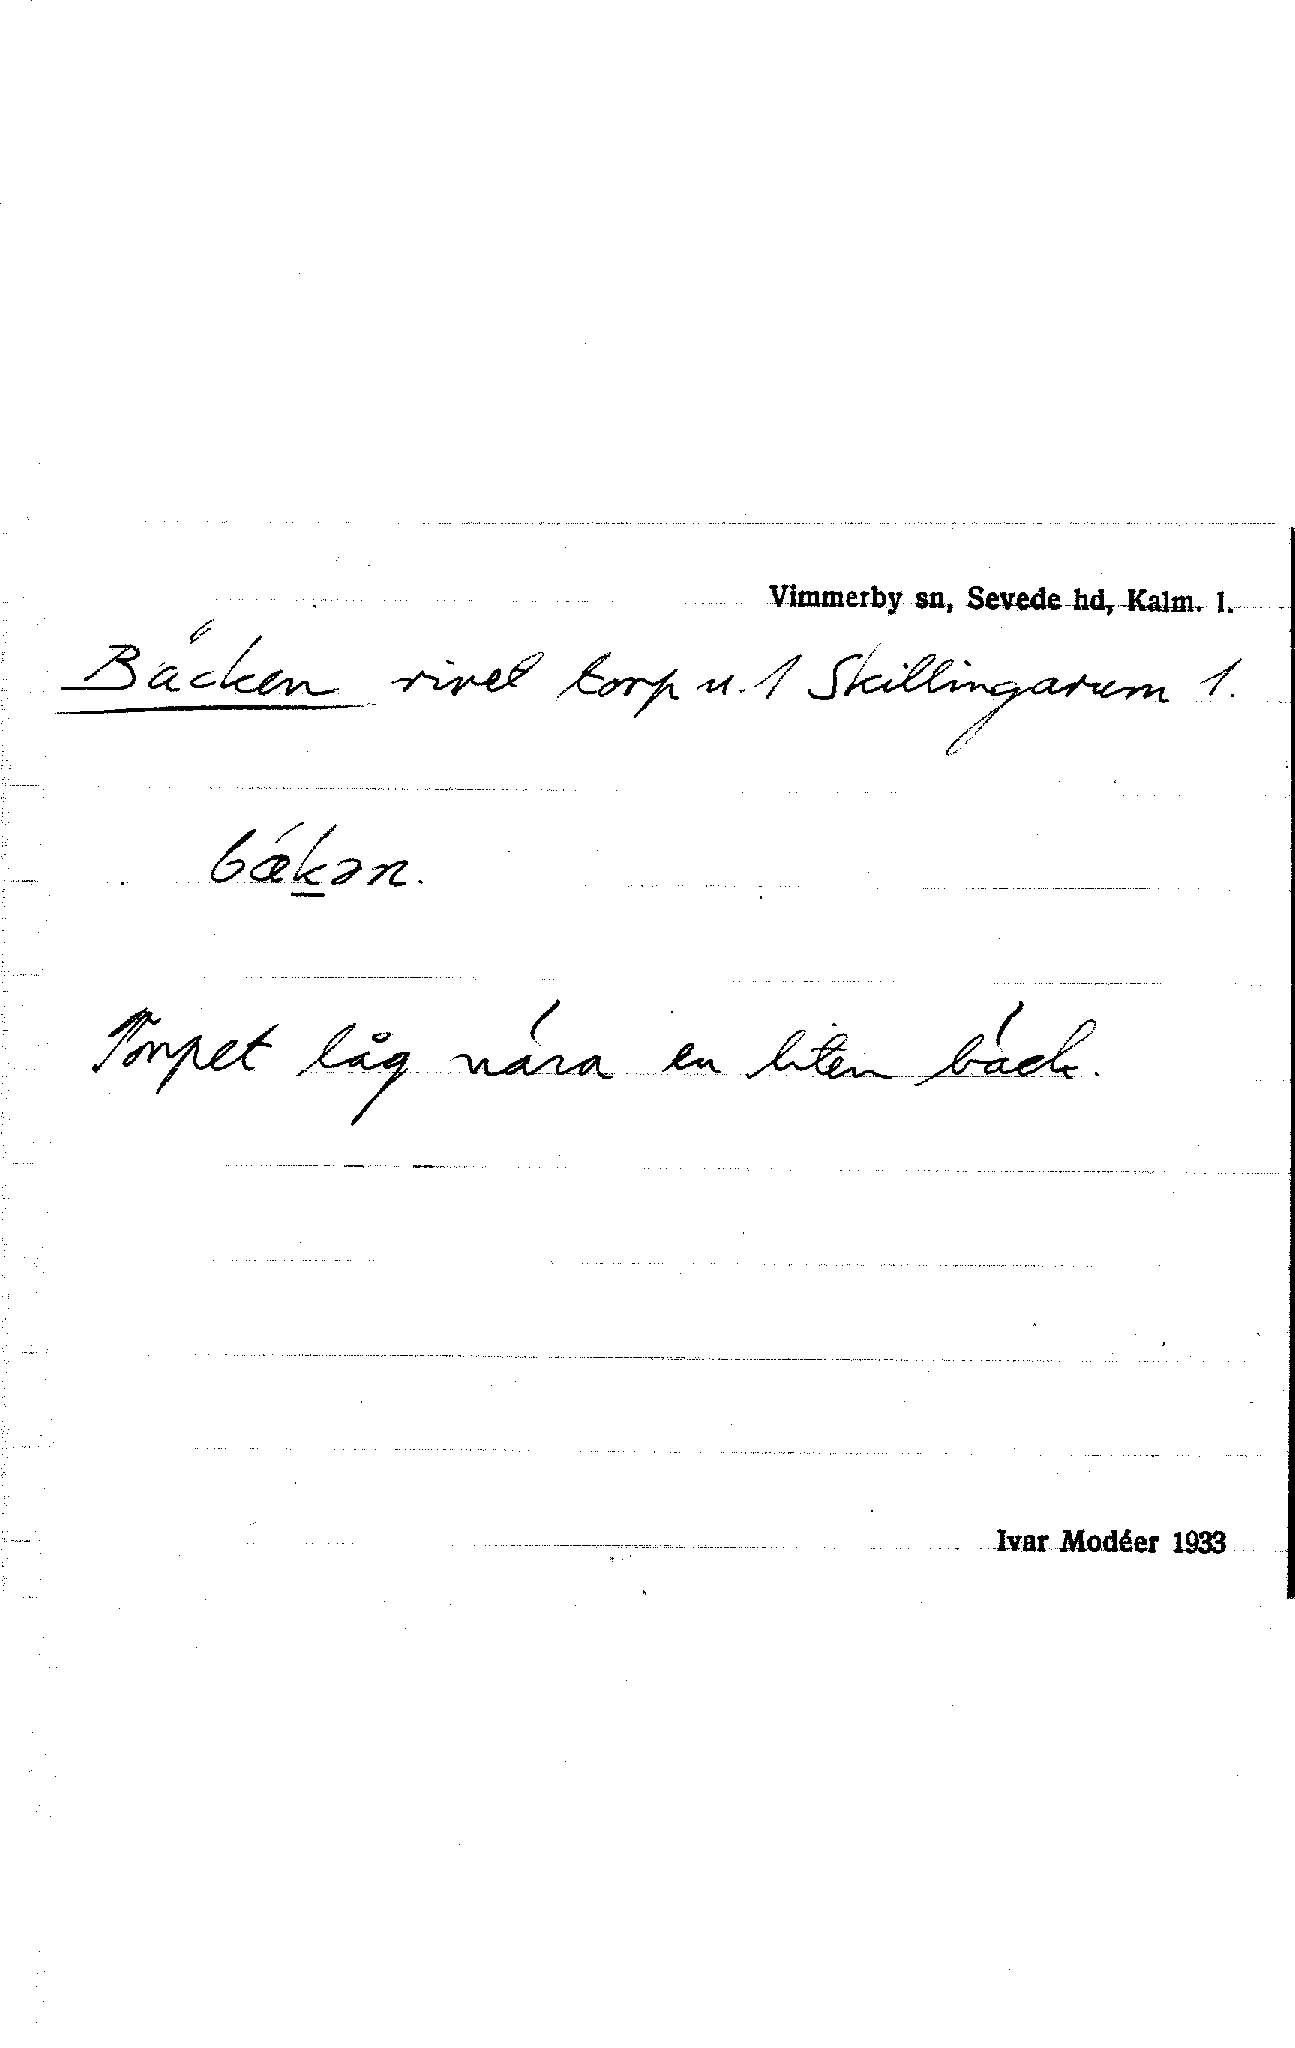 Vimmerby sn, Sevede hd, Kalm. l.
Bäcken rivet torp u. 1 Skillingarum 1.
bǽkən.
Torpet låg nära en liten bäck.
Ivar Modéer 1933